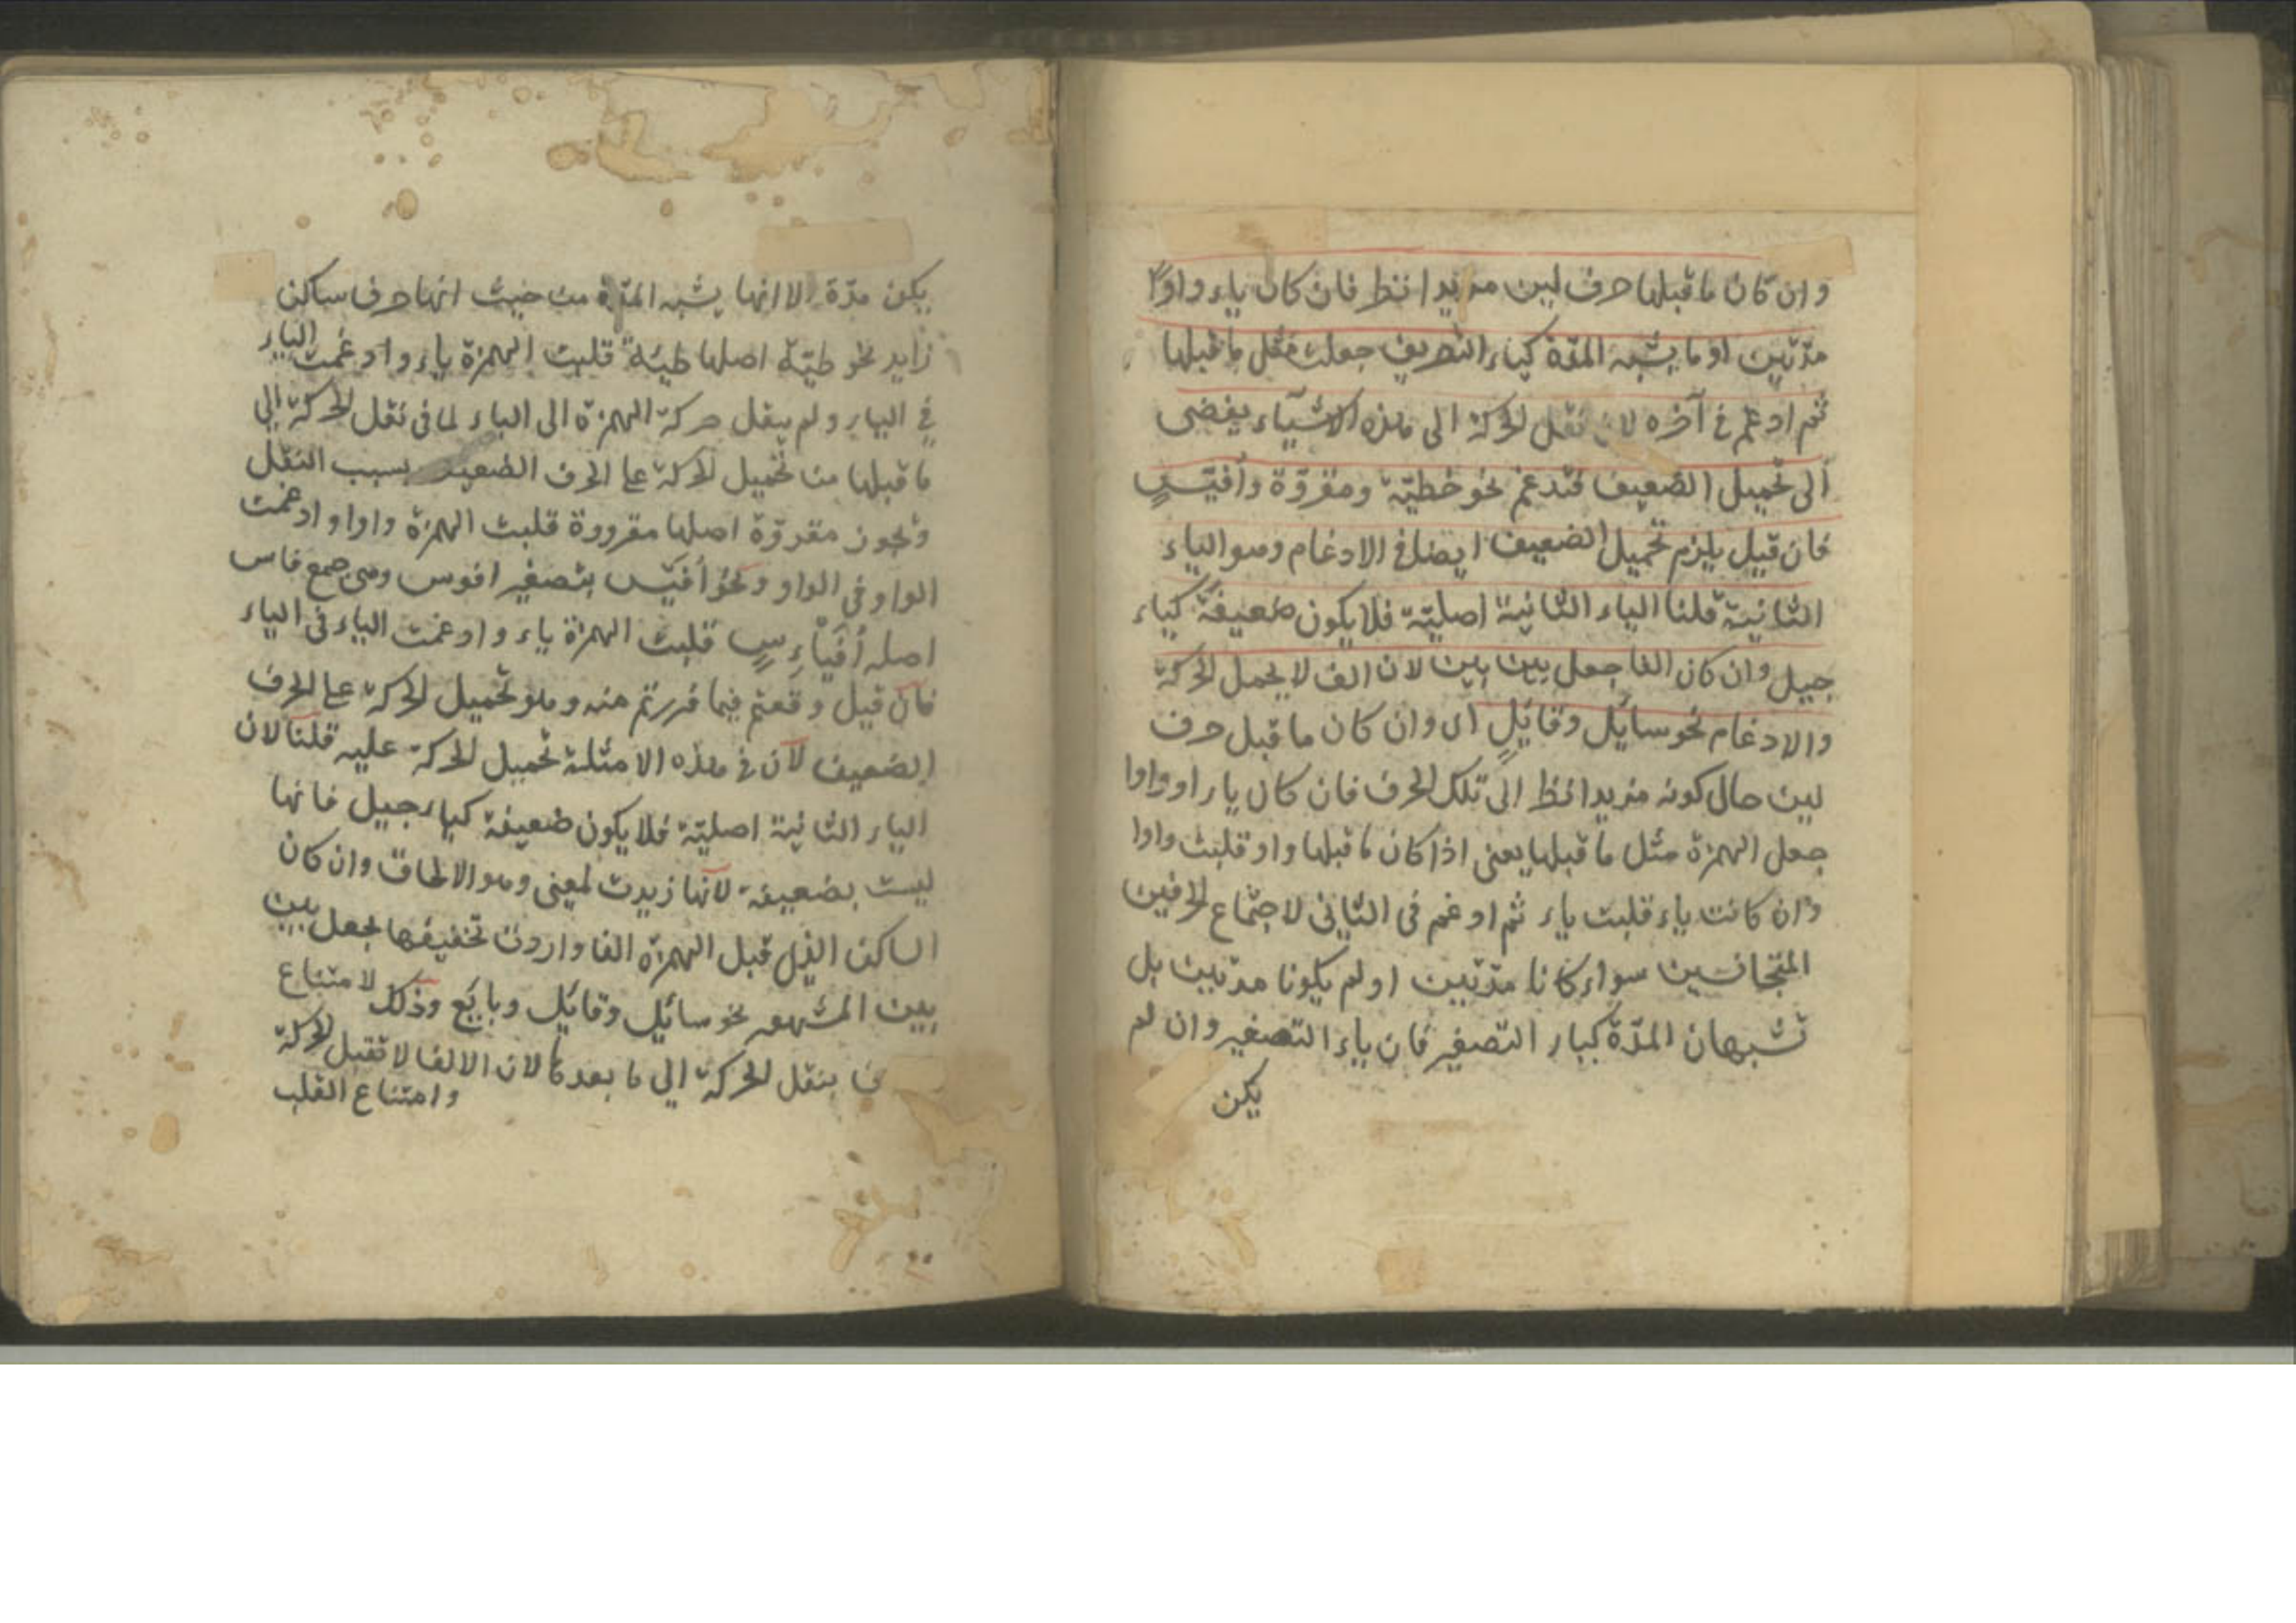 وان كان ما قبلها حرف لين مزيدا نظر فان كان ياء واوا
مدّتين او ما يشبه المدّة كياء التصغير جعلت مثل ما قبلها
ثم ادغم في آخره لان نقل الحركة الى هذه الاشياء يفضى
الى تحميل الضعيف فتدغم نحو خطيّة ومقروّة وأفيّس
فان قيل يلزم تحميل الضعيف ايضا في الادغام وهو الياء
الثانية قلنا الياء الثانية اصليّة فلا يكون ضعيفة كياء
جيل وان كان الفا جعل بين بين لان الف لا يحمل الحركة
والادغام نحو سائل وقائل اى وان كان ما قبل حرف
لين حال كونه مزيدا نظر الى تلك الحرف فان كان ياء او واوا
جعل الهمزة مثل ما قبلها يعنى اذا كان ما قبلها واو قلبت واوا
وان كانت ياء قلبت ياء ثم ادغم فى الثانى لاجتماع الحرفين
المتجانسين سواء كانا مدّتين او لم يكونا مدتين بل
تشبهان المدّة كياء التصغير فان ياء التصغير وان لم
يكن
يكن مدّة الا انها يشبه المدّة من حيث انها حرف ساكن
زايد نحو طيّة اصلها طيئة قلبت الهمزة ياء وادغمت الياء
في الياء ولم ينقل حركة الهمزة الى الياء لما فى نقل الحركة الى
ما قبلها من تحميل الحركة على الحرف الضعيف بسبب النقل
ونحو مقروّة اصلها مقرووة قلبت الهمزة واوا وادغمت
الواو فى الواو ونحو أفيّس بتصغير افوس وهى جمع فاس
اصله أُفَيْأِسٍ قلبت الهمزة ياء وادغمت الياء فى الياء
فان قيل وقعتم فيما فررتم منه وهو تحميل الحركة على الحرف
الضعيف لان في هذه الامثلة تحميل الحركة عليه قلنا لان
الياء الثانية اصليّة فلا يكون ضعيفة كياء جيل فانها
ليست بضعيفة لانها زيدت لمعنى وهو الالحاق وان كان
الساكن الذى قبل الهمزة الفا واردت تخفيفها بجعل بين
بين المشهور نحو سائل وقائل وبايع وذلك لامتناع
بنقل الحركة الي ما بعدها لان الالف لا تقبل الحركة
وامتناع القلب